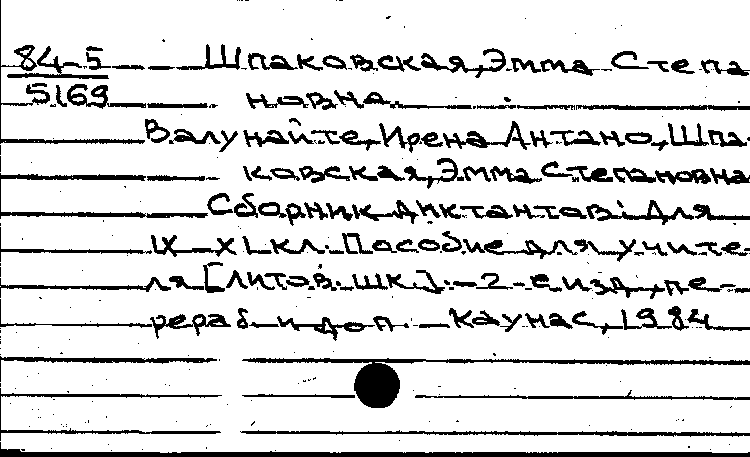 84-5 Шпаковская, Эмма Степа
5169 новна.
Валунайте, Ирена Антано, Шпа-
ковская, Эмма Степановна
Сборник диктантов: Для
IX-XI кл. Пособие для учите-
ля [литов. шк.]. - 2-е изд., пе-
рераб. и доп. - Каунас, 1984